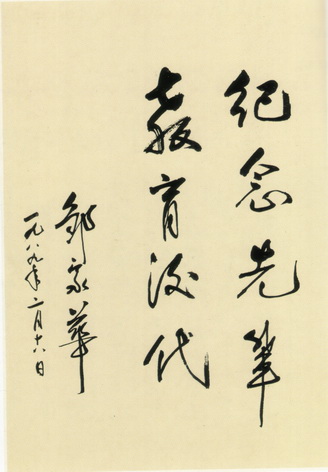 纪念先辈
教育后代
邹家华
一九八九年二月十六日